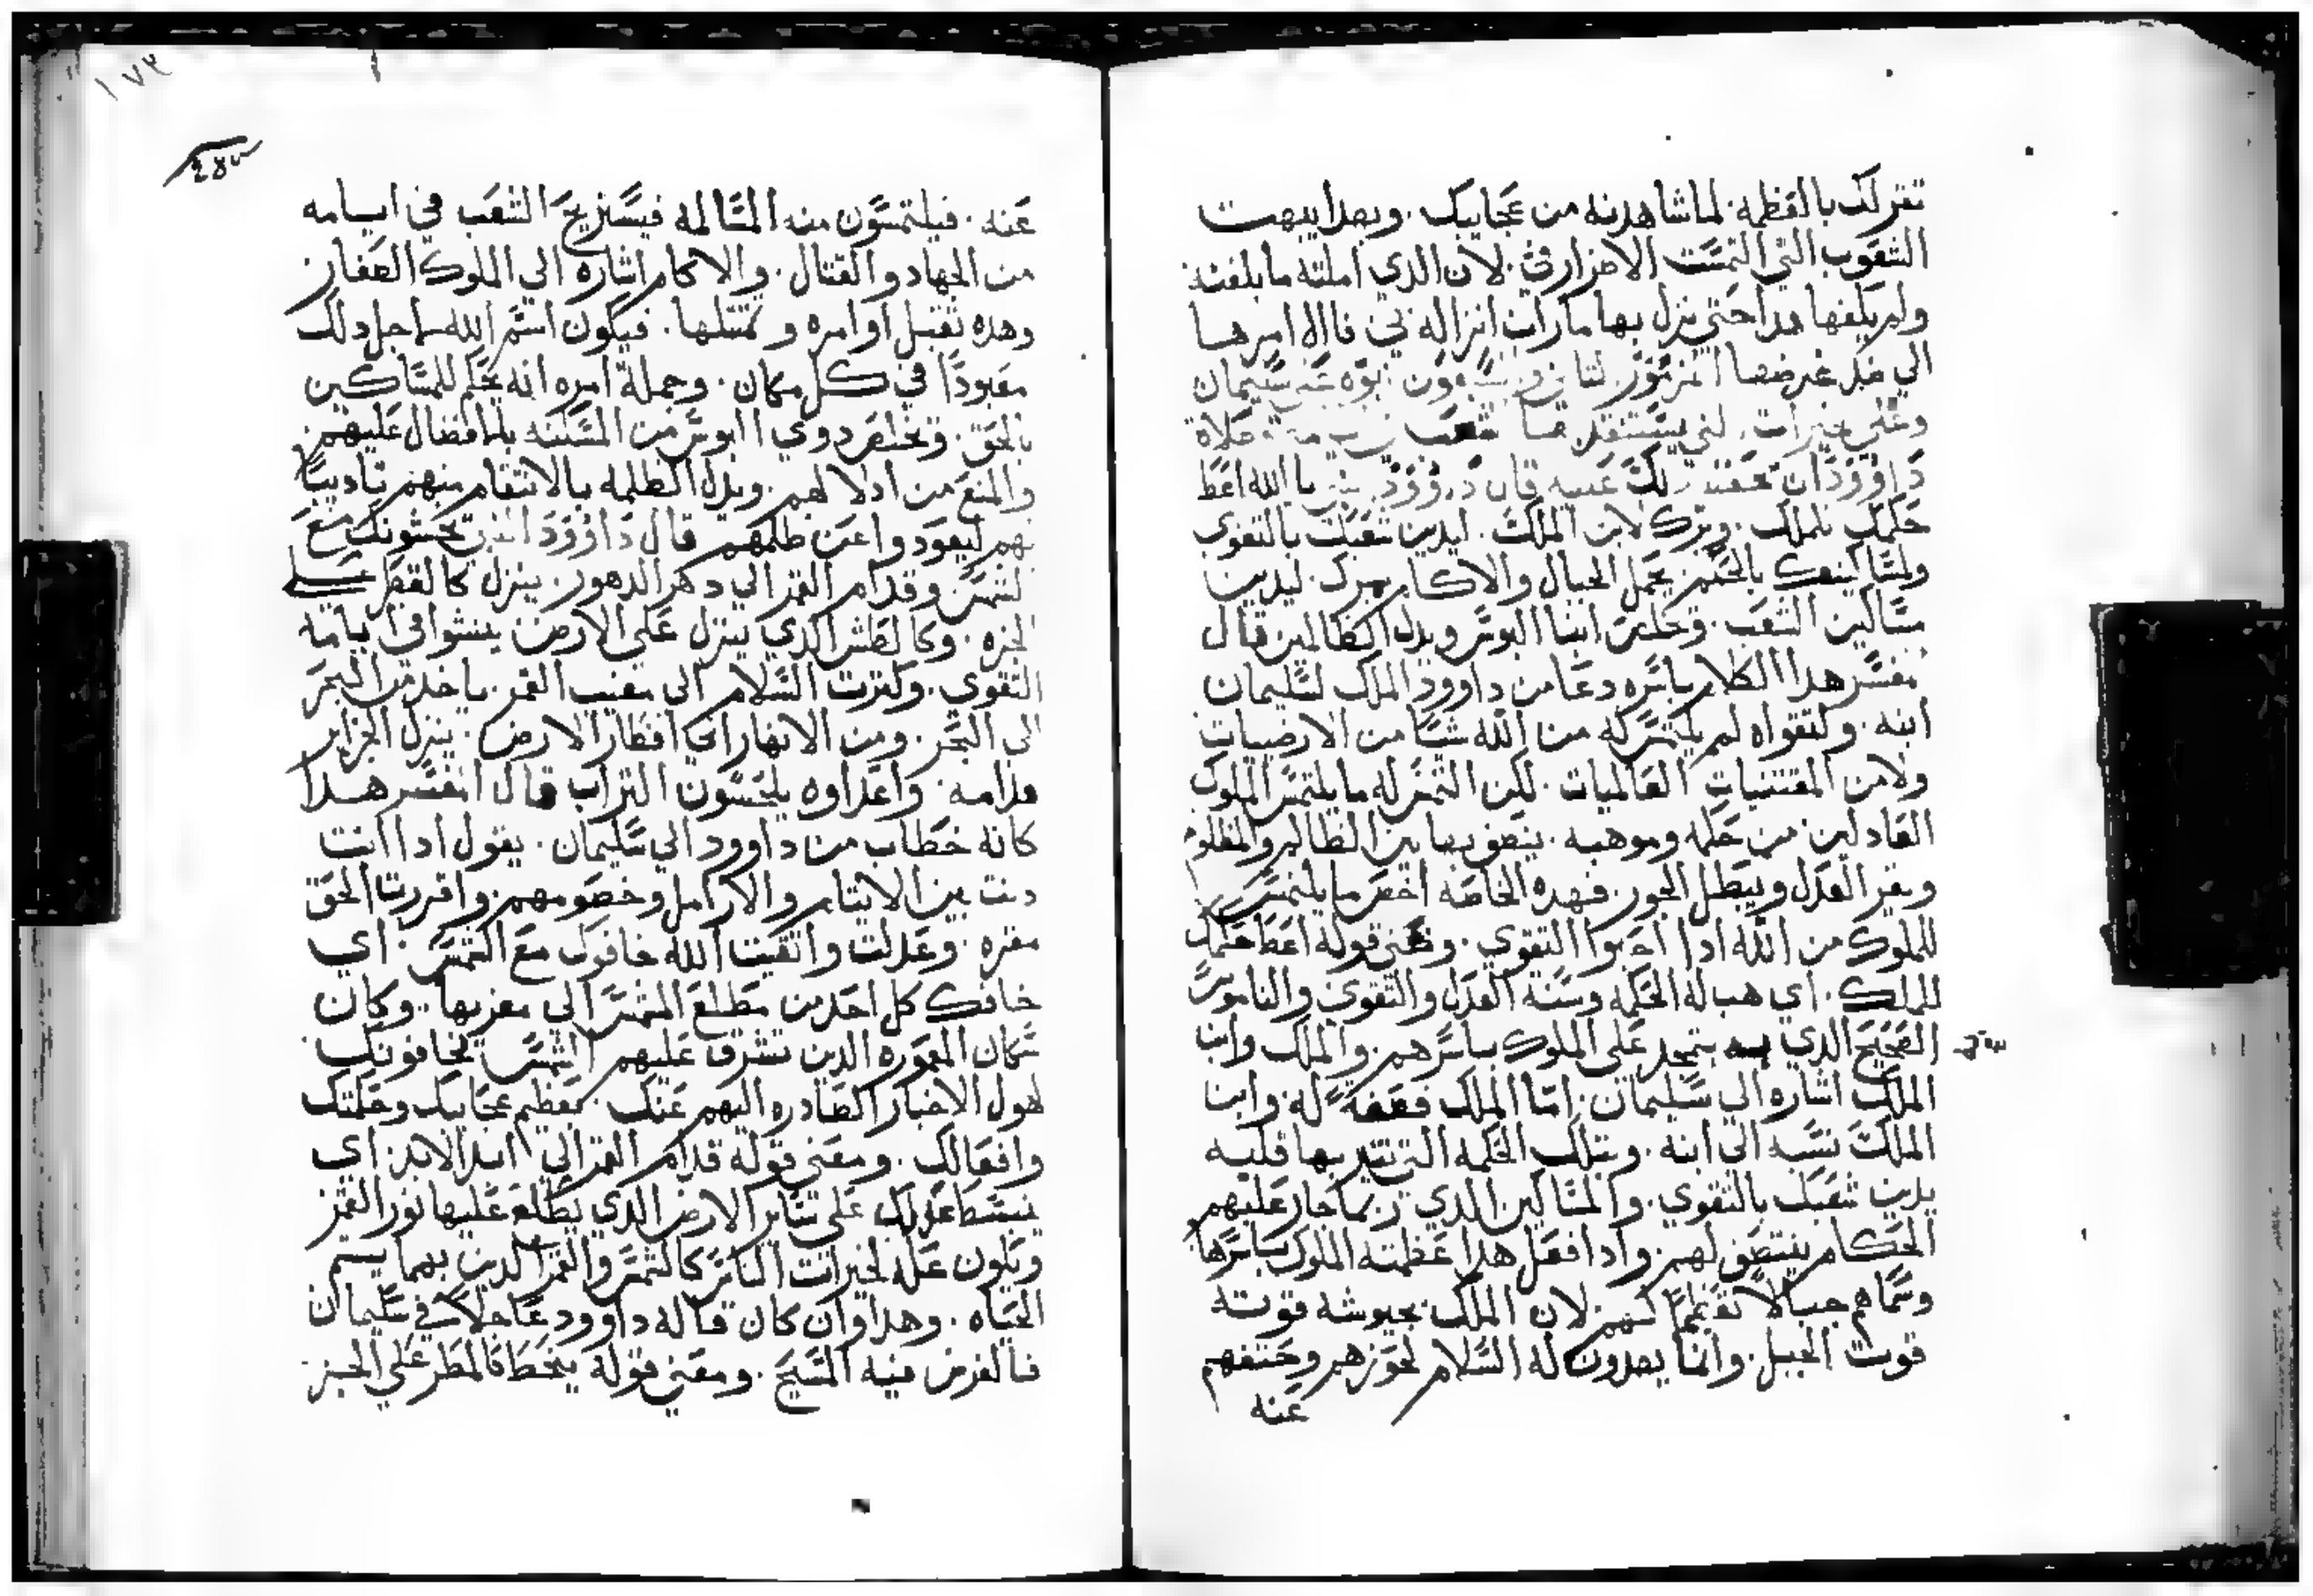 تقر لك بالعظمه. لما شاهدته من عجايبك. وبهدا يبهت
الشعوب التي التمست الاضرار في. لان الدي املته ما بلغته
ولم يلغها هدا حتي نزل بها ما رات انزاله بي فاال امرها
الي ضد غرضها المزمور نبوه عن سليمان
وعلي خيرات
داوود ان قال داوود النبي يا الله اعط
حكمك للملك. وبرك لابن الملك. ليدين شعبك بالتقوي
ولمساكينك بالحكم تحمل الجبال والاكام بهرك. ليدين
مساكين الشعب. ويخلص ابنا البوس ويدل الظالمين قال
مفسر هدا الكلام باسره دعا من داوود الملك لسليمان
ابنه. ولتقواه لم يلتمس له من الله شيا من الارضيات
ولا من المقتنيات العالميات. لكن التمس له ما يلتمس الملوك
العادلين من حكمه وموهبه. ينصف بها بين الظالم والمظلوم
ويقر العدل ويبطل الجور. فهده الخاصه اخص ما يلتمس
للملوك من الله ادا احبوا التقوي. ومعني قوله اعط حكمك
للملك. اي هب له الحكمه وسنه العدل والتقوي والناموس
الصحيح الدي به يتمجد علي الملوك باسرهم. والملك وابن
الملك اشاره الي سليمان. اما الملك فصفة له وابن
الملك نسبه الي ابنه. وبتلك الحكمه التي تتدبر بها قلبه
يدين شعبك بالتقوي. والمساكين الدي ربما جار عليهم
الحكام ينتصف لهم. وادا فعل هدا عظمته الملوك باسرها
وسماهم جبالا تعظيما لهم لان الملك بجيوشه قوته
قوت الجبل. وانما يهدون له السلام لحوزهم وخنفهم
عنه
عنه. فيلتمسون منه المسالمه فيستريح الشعب في ايامه
من الجهاد والقتال. والاكام اشاره الي الملوك الصغار
وهده تقتبل اوامره وتمتثلها. فيكون اسم الله من اجل دلك
معبودا في كل مكان. وجملة امره انه يحكم للمساكين
بالحق. ويخلص دوي البوس من المسكنه بالافضال عليهم
والمنع من ادلالهم. ويدل الظلمه بالانتقام منهم تاديبا
لهم ليعودوا عن ظلمهم قال داوود النبي يخشونك مع
الشمس وقدام القمر الي دهر الدهور. ينزل كالقطر علي
الجزه. وكالطش الدي ينزل علي الارض ينشوا في ايامه
التقوي. وكترت السلام الي مغيب القمر. ياخد من البحر
الي البحر. ومن الانهار الي اقطار الارض. ينزل الجزاير
قدامه. واعداوه يلحسون التراب قال المفسر هدا
كانه خطاب من داوود الي سليمان. يقول ادا انت
دنت بين الايتام والارامل وخصومهم. واقررت الحق
مقره. وعدلت واتقيت الله خافوك مع الشمس. اي
خافك كل احد من مطلع الشمس الي مغربها. وكان
سكان المعموره الدين تشرق عليهم الشمس يخافونك
لهول الاخبار الصادره اليهم عنك. بعظيم عجايبك وحكمتك
وافعالك. ومعني قوله قدام القمر الي ابد الابد. اي
ينبسط عدلك علي ساير الارض الدي يطلع عليها نور القمر
ويكون علة لخيرات الناس كالشمس والقمر الدين بهما يتم
الحياه. وهدا وان كان قاله داوود عاجلا في سليمان
فالغرض فيه المسيح. ومعني قوله ينحط كالمطر علي الجز